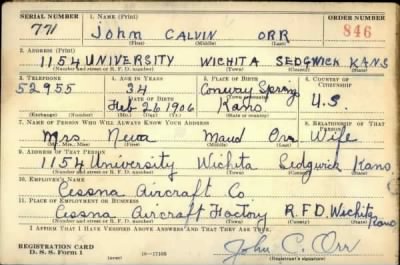 SERIAL NUMBER 1. NAME (Print) ORDER NUMBER
771 John CALVIN ORR 846
(First) (Middle) (Last)
2. ADDRESS (Print)
1154 UNIVERSITY WICHITA SEDGWICK KANS
(Number and street or R. F. D. number) (Town) (County) (State)
3. TELEPHONE 4. AGE IN YEARS 5. PLACE OF BIRTH 6. COUNTRY OF CITIZENSHIP
52955 34 Conway Springs
DATE OF BIRTH (Town or county)
Feb 26 1906 Kans. U.S.
(Exchange) (Number) (Mo.) (Day) (Yr.) (State or country)
7. NAME OF PERSON WHO WILL ALWAYS KNOW YOUR ADDRESS 8. RELATIONSHIP OF THAT PERSON
Mrs. Maud Orr Wife
(Mr., Mrs., Miss) (First) (Middle) (Last)
9. ADDRESS OF THAT PERSON
1154 University Wichita Sedgwick Kans
(Number and street or R. F. D. number) (Town) (County) (State)
10. EMPLOYER'S NAME
Cessna Aircraft Co
11. PLACE OF EMPLOYMENT OR BUSINESS
Cessna Aircraft Factory R.F.D. Wichita Kans
(Number and street or R. F. D. number) (Town) (County) (State)
I AFFIRM THAT I HAVE VERIFIED ABOVE ANSWERS AND THAT THEY ARE TRUE.
REGISTRATION CARD
D. S. S. Form 1 (over) 16-17105 John C. Orr